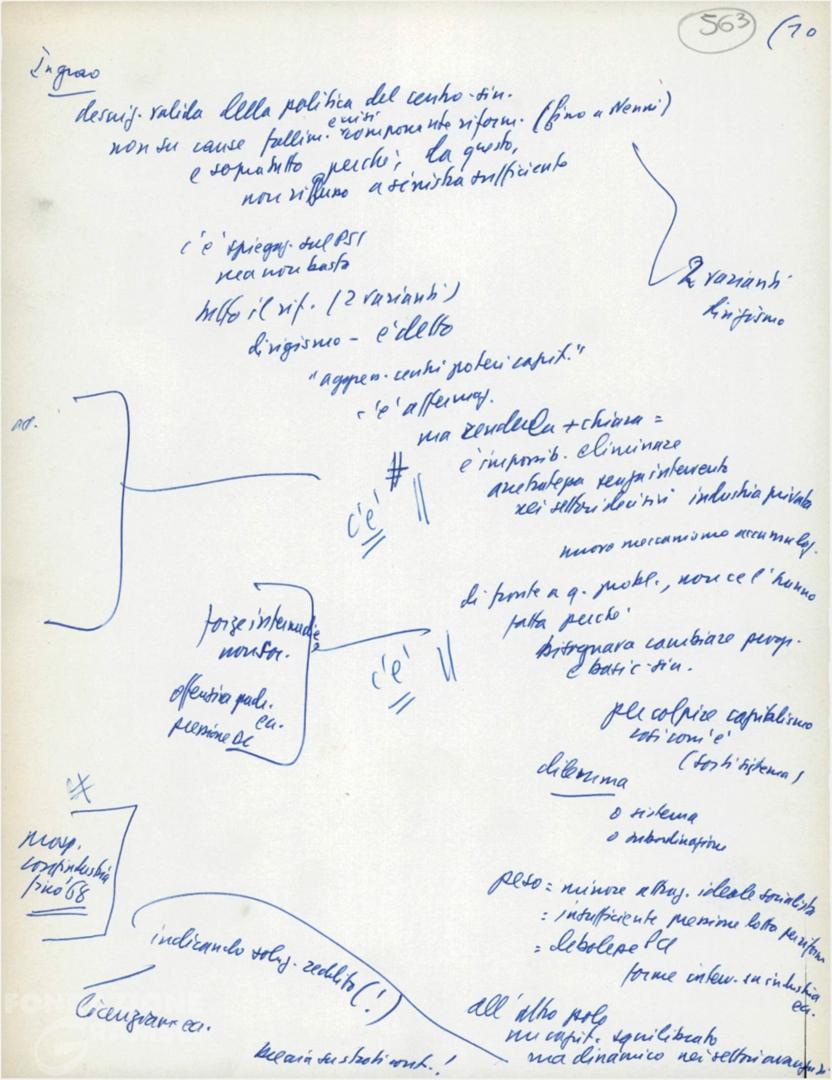 563
(10
Ingrao
descriz. valida della politica del centro-sin.
non su cause fallim. e crisi componente riform. (fino a Nenni)
e soprattutto perché, da questo,
non rifluno a sinistra sufficiente
c'è spiegaz. sul PSI
ma non basta
2 varianti
dirigismo
tutto il rif. (2 varianti)
dirigismo - è detto
"aggreg. centri poteri capit."
c'è affermaz.
ma renderla + chiara =
è impossib. eliminare
arretratezza senza intervento
nei settori decisivi industria privata
c'è
nuovo meccanismo accumulaz.
di fronte a q. probl., non ce l'hanno
fatta perché
bisognava cambiare
e basi c-sin.
forze intermedie
non soc.
c'è
offensiva padr.
ecc.
pressione DC
per colpire capitalismo
così com'è
(sorti sistema)
dilemma
o sistema
o subordinazione
confindustria
fino '68
peso = minore attraz. ideale socialista
= insufficiente pressione lotta per riform
= debolezze PCI
forme interv. su industria
ecc.
indicando solo redditi (!)
licenziam ecc.
all'altro polo
un capit. squilibrato
ma dinamico nei settori avanzati